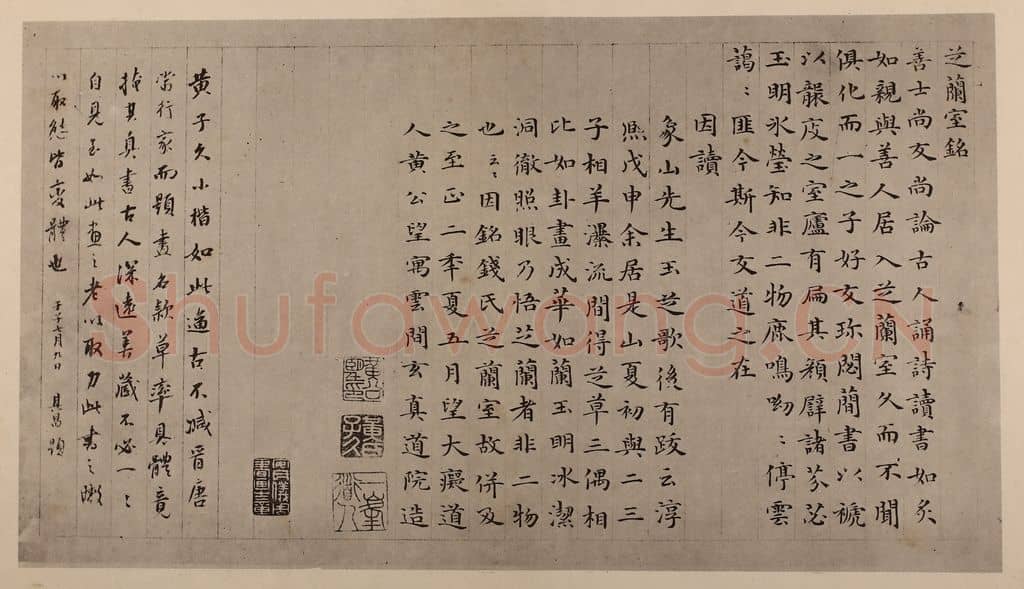 芝蘭室銘
善士尚友尚論古人誦詩讀書如炙
如親與善人居入芝蘭室久而不聞
俱化而一之子好友珎閟蕳書以褫
度之室廬有扁其顏辟諸芬苾
玉明氷瑩知非二物庶鳴呦〻停雲
藹〻匪今斯今友道之在
因讀
象山先生玉芝歌後有跋云淳
熈戊申余居是山夏初與二三
子相羊瀑流間得芝草三偶相
比如卦畫成華如蘭玉明冰潔
洞徹照眼乃悟芝蘭者非二物
也云〻因銘錢氏芝蘭室故併及
之至正二秊夏五月望大癡道
人黃公望寓雲間玄真道院造
黃氏子久
一峯道人
黃子久小楷如此遒古不減晉唐
當行家而題畫名款草率具體竟
掩其真書古人深遠美藏不必一〻
自見至如此畫之老以取力此書之嫩
以取態皆變體也 壬子七月九日 其昌題
Shufawang.CN